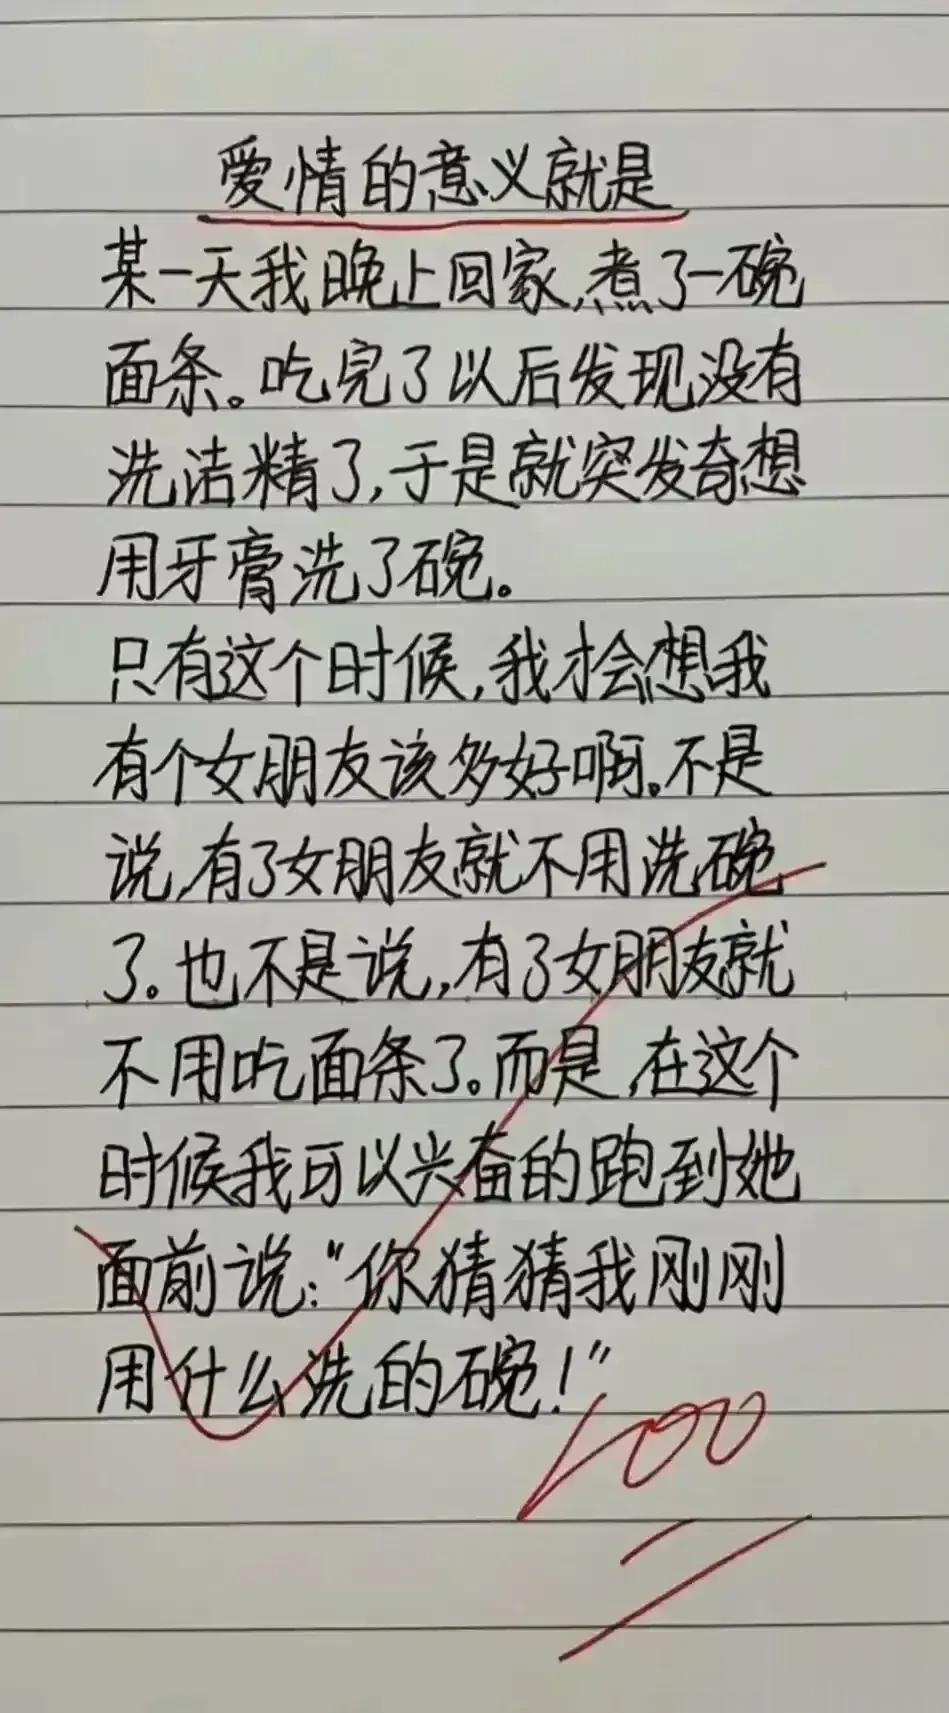 爱情的意义就是
某一天我晚上回家,煮了一碗
面条。吃完了以后发现没有
洗洁精了,于是就突发奇想
用牙膏洗了碗。
只有这个时候,我才会想我
有个女朋友该多好啊。不是
说,有了女朋友就不用洗碗
了。也不是说,有了女朋友就
不用吃面条了。而是,在这个
时候我可以兴奋的跑到她
面前说:“你猜猜我刚刚
用什么洗的碗!”
100